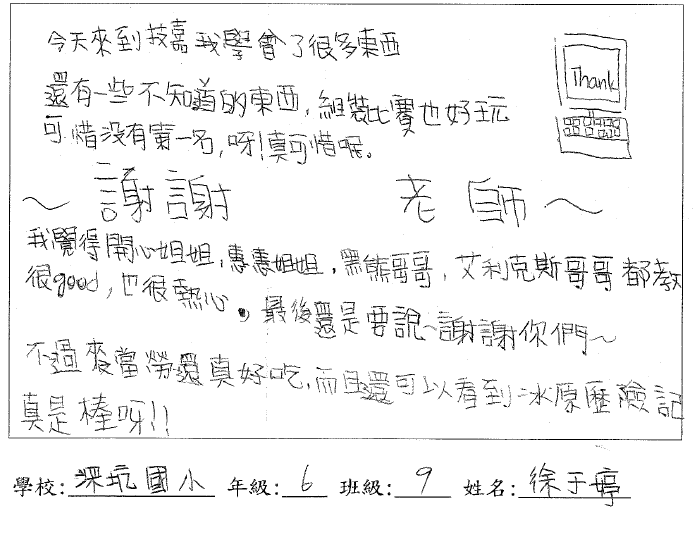 今天來到技嘉我學會了很多東西
還有一些不知道的東西,組裝比賽也好玩
可惜沒有第一名,呀!真可惜喔。
Thank
~ 謝謝 老師~
我覺得開心姐姐,惠惠姐姐,黑熊哥哥,艾利克斯哥哥都教
很good,也很熱心。最後還是要說~謝謝你們~
不過麥當勞還真好吃,而且還可以看到冰原歷險記
真是棒呀!!
學校:深坑國小 年級:6 班級:9 姓名:徐于婷